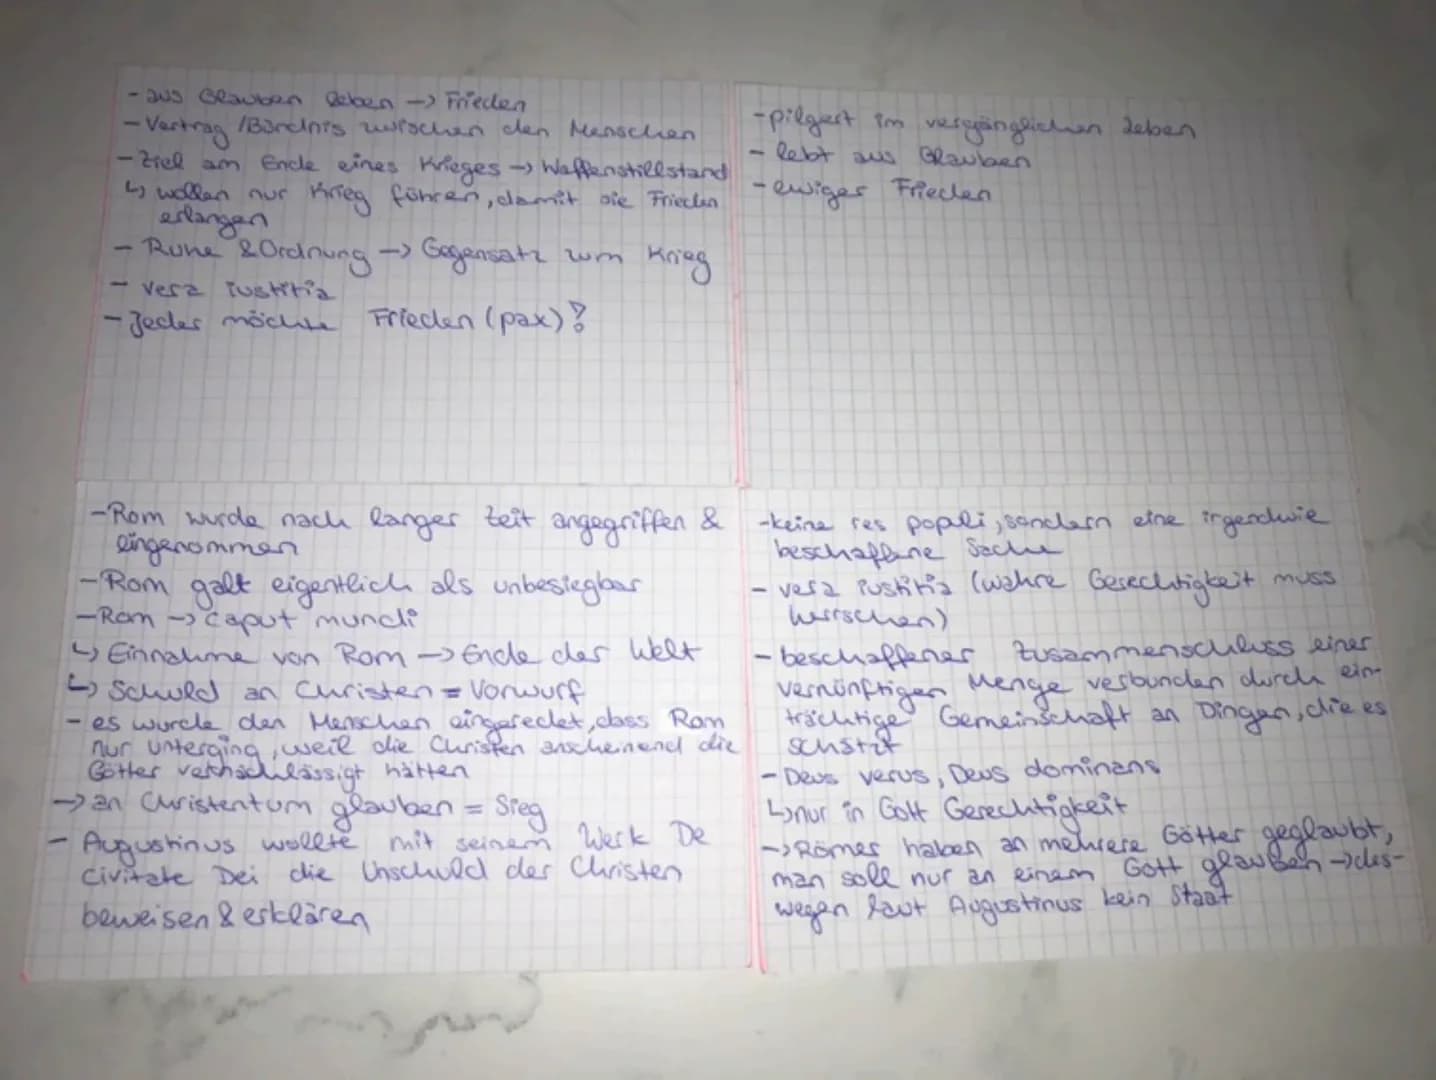 - aus Glauben leben -> Frieden
- Vertrag / Bündnis zwischen den Menschen
- Ziel am Ende eines Krieges -> Waffenstillstand
↳ wollen nur Krieg führen, damit sie Frieden
erlangen
- Ruhe & Ordnung -> Gegensatz zum Krieg
- vera iustitia
- Jeder möchte Frieden (pax)?
- pilgert im vergänglichen Leben
- lebt aus Glauben
- ewiger Frieden
- Rom wurde nach langer Zeit angegriffen &
eingenommen
- Rom galt eigentlich als unbesiegbar
- Rom -> caput mundi
↳ Einnahme von Rom -> Ende der Welt
↳ Schuld an Christen = Vorwurf
- es wurde den Menschen eingeredet, dass Rom
nur unterging, weil die Christen anscheinend die
Götter vernachlässigt hätten
-> an Christentum glauben = Sieg
- Augustinus wollte mit seinem Werk De
Civitate Dei die Unschuld der Christen
beweisen & erklären
- keine res populi, sondern eine irgendwie
beschaffene Sache
- vera iustitia (wahre Gerechtigkeit muss
herrschen)
- beschaffener Zusammenschluss einer
vernünftigen Menge verbunden durch ein-
trächtige Gemeinschaft an Dingen, die es
schätzt
- Deus verus, Deus dominans
↳ nur in Gott Gerechtigkeit
-> Römer haben an mehrere Götter geglaubt,
man soll nur an einem Gott glauben -> des-
wegen laut Augustinus kein Staat